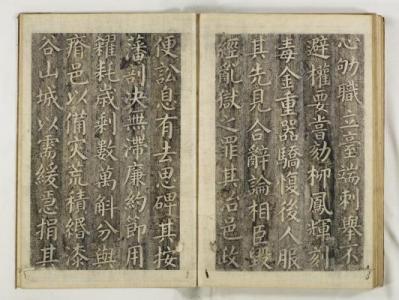 心劬職立臺端刺舉不
避權要嘗劾柳鳳輝刻
毒金重器驕愎後人服
其先見合辭論相臣毀
經亂獄之罪其治邑政
便訟息有去思碑其按
藩剖決無滯廉約節用
糶耗歲剩數萬斛分與
瘠邑以備灾荒積緡漆
谷山城以需緩急捐其